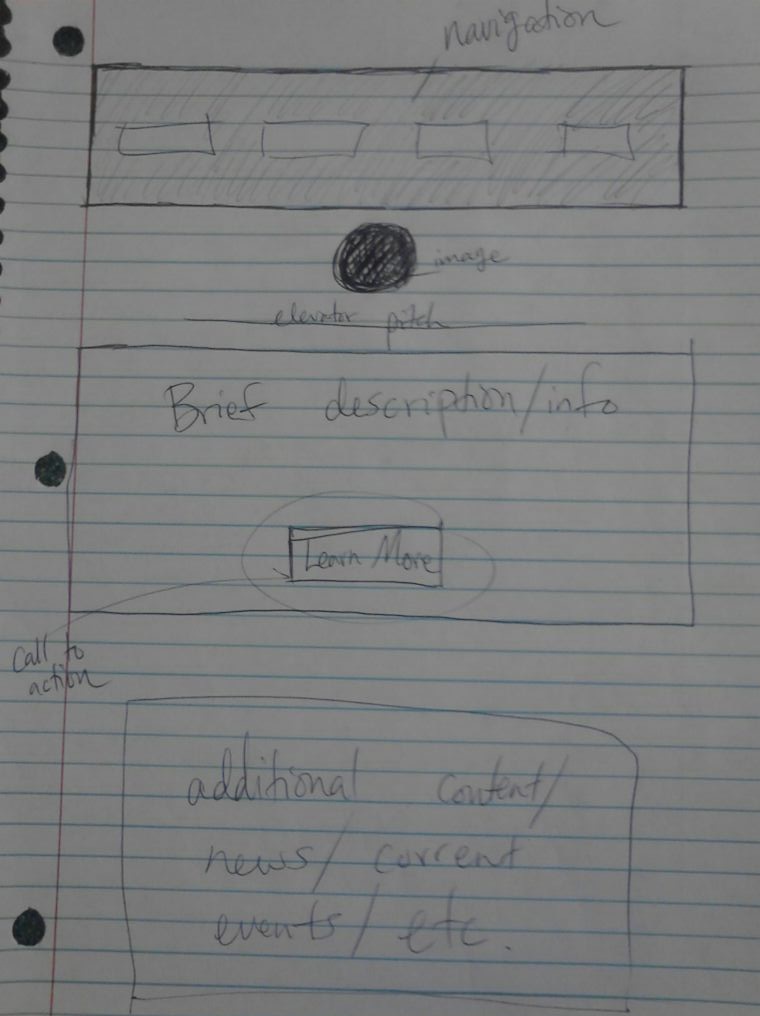 navigation
image
elevator pitch
Brief description/info
Learn More
Call to
action
additional content/
news/current
events/etc.